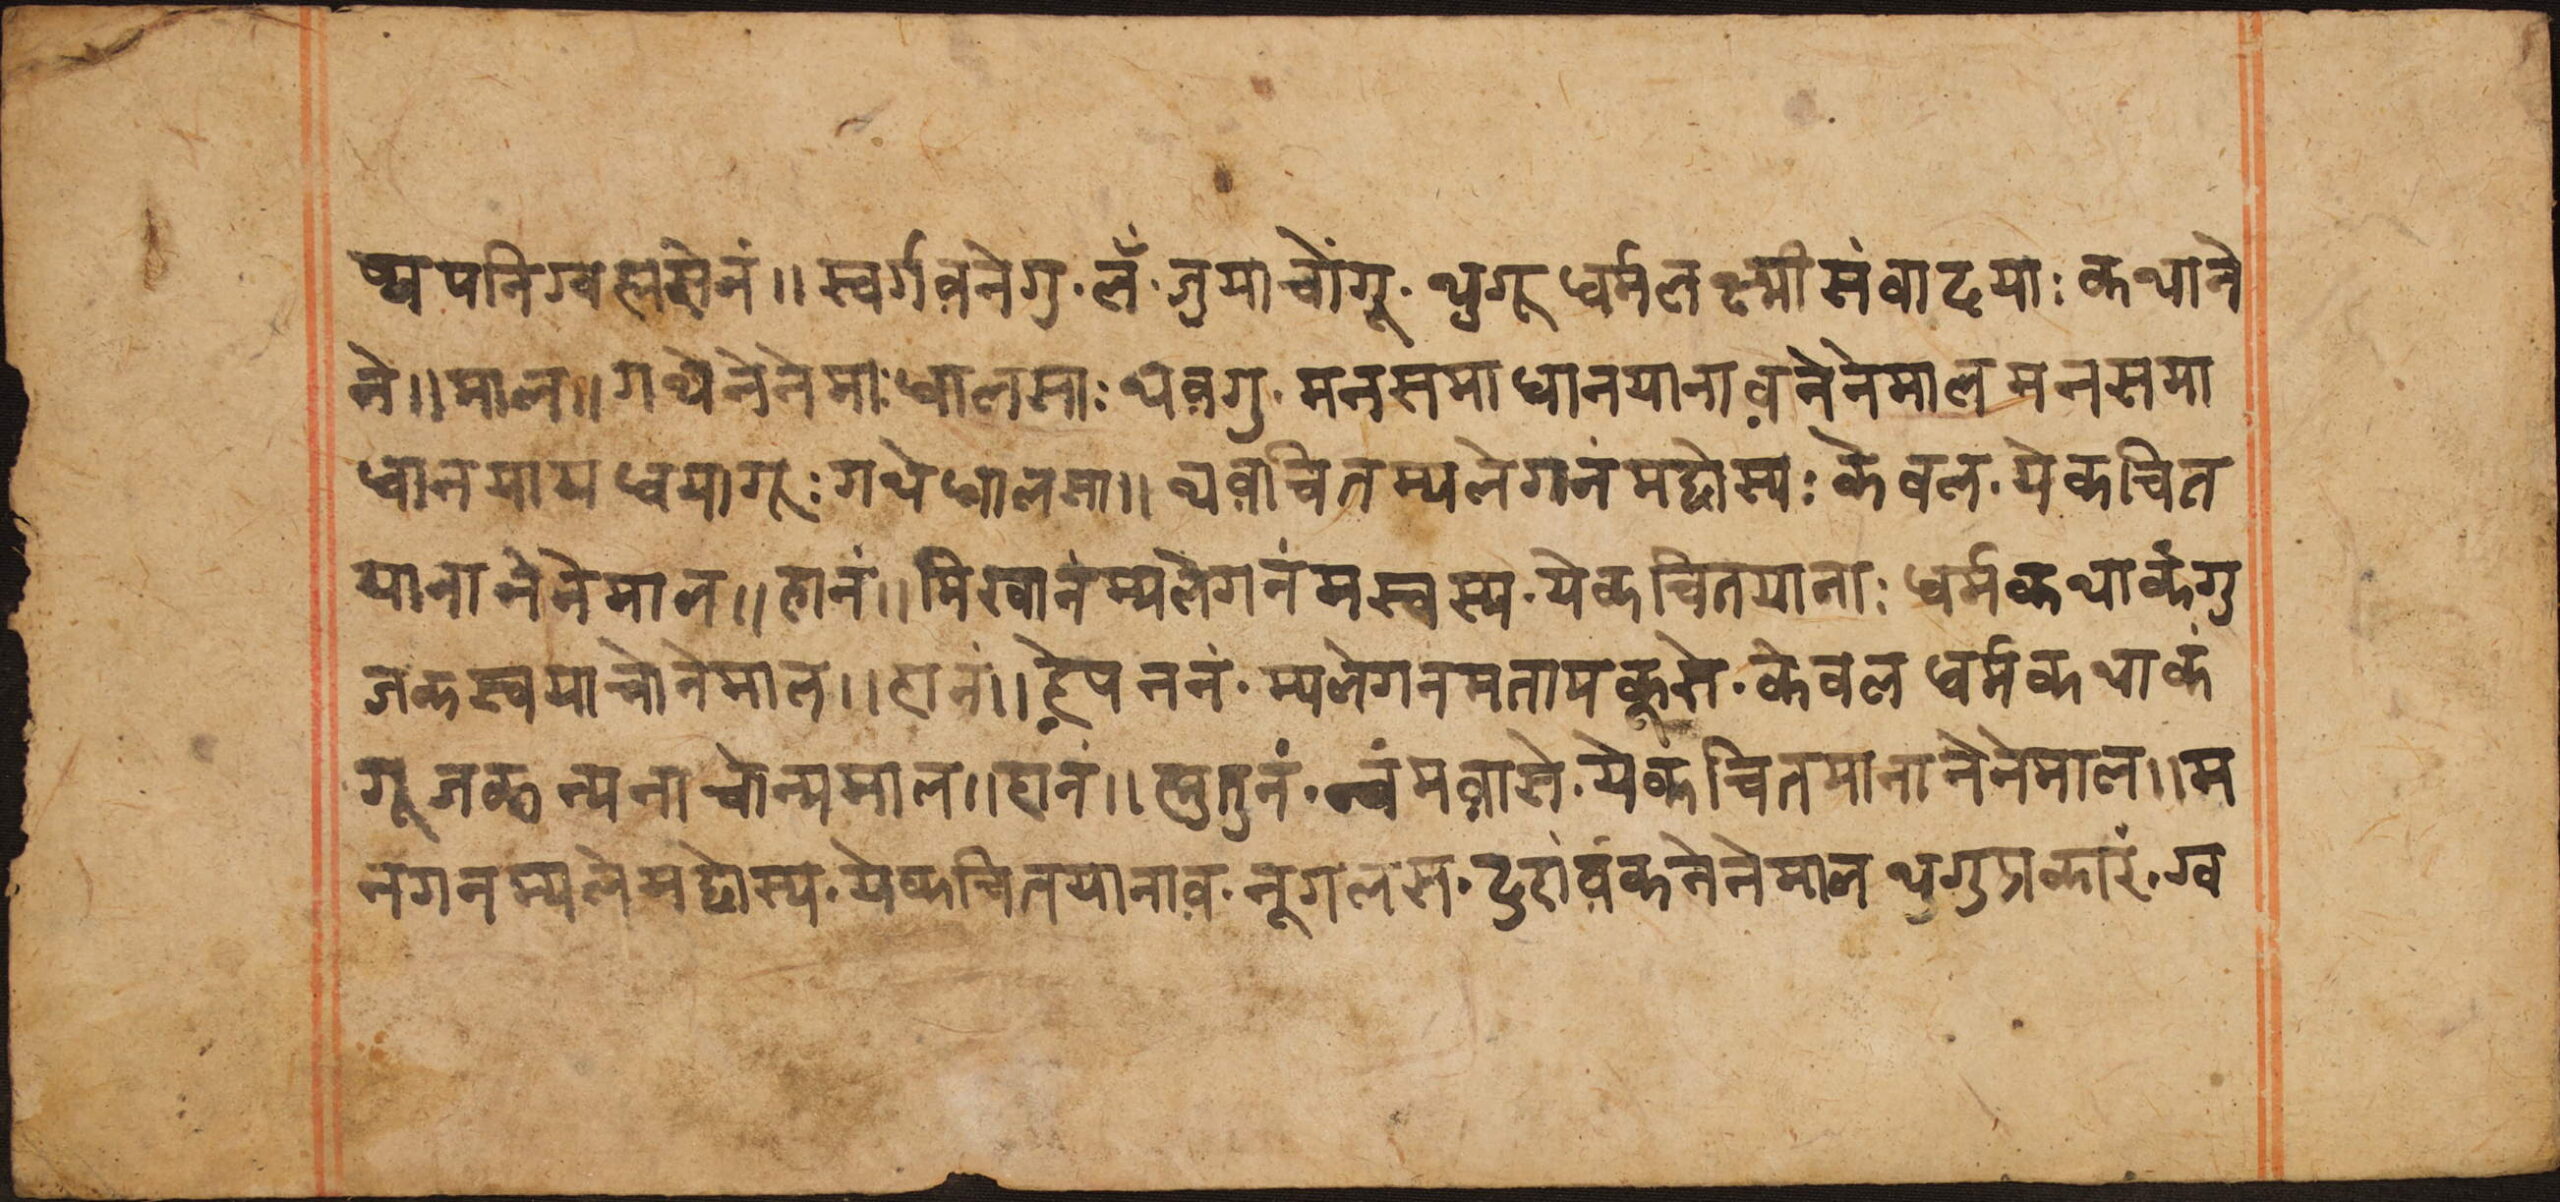 ष्यपनिग्वह्मसेनं॥ स्वर्गव़नेगु · लँ · जुयाचोंगू · थुगू धर्मलक्ष्मीसंवादया: कथाने
ने॥ माल॥ गथेनेनेमा: धालसा: थव़गु · मनसमाधानयानाव़ नेनेमाल मनसमा
धानयाय ध्वयागू: गथे धालसा॥ थव़चित म्यलेगनं मद्वोस्य: केवल · येकचित
याना नेनेमाल॥ हानं॥ मिखानं म्यलेगनं मस्वस्य · येकचितयाना: धर्मकथाकंगु
जकस्वयाचोनेमाल॥ हानं॥ ह्रेपननं · म्यलेगनमतायकूसे · केवल धर्मकथाकं
गू जक न्यनाचोन्यमाल॥ हानं॥ ह्तुतुनं · न्वंमव़ासे · येकंचितयाना नेनेमाल॥ म
नगनम्यले मद्वोस्य · येकचितयानाव़ · नूगलस · दुहांव़ंक नेनेमाल थुगुप्रकारं · ग्व